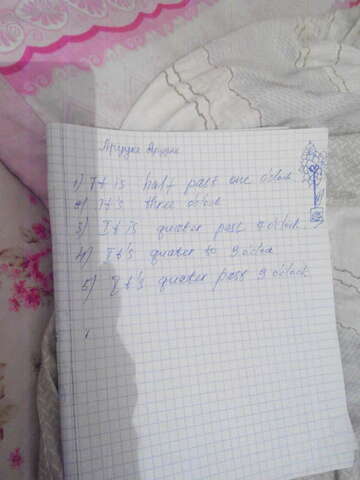 1) It is half past one o'clock
2) It's three o'clock
3) It is quater past 7 o'clock
4) It's quater to 9 o'clock
5) It's quater past 9 o'clock